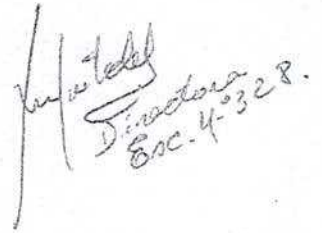 Directora
Esc. 4-328.